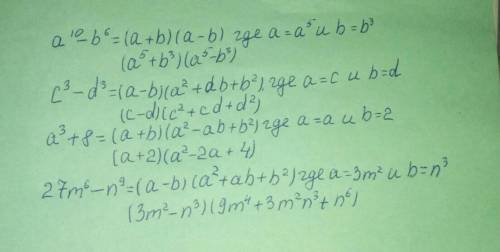 a¹⁰-b⁶=(a+b)(a-b) где a=a⁵ и b=b³
(a⁵+b³)(a⁵-b³)
c³-d³=(a-b)(a²+ab+b²), где a=c и b=d
(c-d)(c²+cd+d²)
a³+8=(a+b)(a²-ab+b²) где a=a и b=2
(a+2)(a²-2a+4)
27m⁶-n⁹=(a-b)(a²+ab+b²) где a=3m² и b=n³
(3m²-n³)(9m⁴+3m²n³+n⁶)